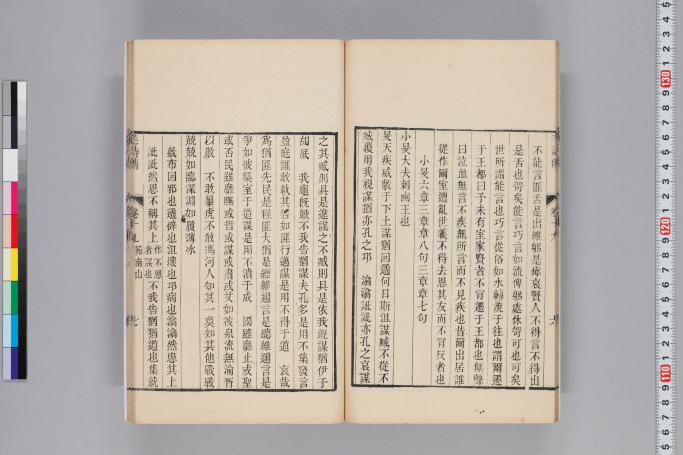 不能言匪舌是出維躬是瘁哀賢人不得言不得出
是舌也哿矣能言巧言如流俾躬處休哿可也可矣
世所謂能言也巧言從俗如水轉流于往也謂爾遷
于王都曰予未有室家賢者不肎遷于王都也無聲
曰泣血無言不疾無所言而不見疾也昔爾出居誰
從作爾室遭亂世義不得去思其友而不肎反者也
小旻六章三章章八句三章章七句
小旻大夫刺幽王也
旻天疾威敷于下土謀猶回遹何日斯沮謀臧不從不
臧覆用我視謀猶亦孔之邛 潝潝訿訿亦孔之哀謀
之其臧則具是違謀之不臧則具是依我視謀猶伊于
胡厎 我龜旣厭不我告猶謀夫孔多是用不集發言
盈庭誰敢執其咎如匪行邁謀是用不得于道 哀哉
爲猶匪先民是程匪大猶是經維邇言是聽維邇言是
爭如彼築室于道謀是用不潰于成 國雖靡止或聖
或否民雖靡膴或哲或謀或肅或艾如彼泉流無淪胥
以敗 不敢暴虎不敢馮河人知其一莫知其他戰戰
兢兢如臨深淵如履薄冰
敷布回邪也遹辟也沮壞也邛病也潝潝然患其上
訿訿然思不稱其上作不思者誤也 不我告猶猶道也集就